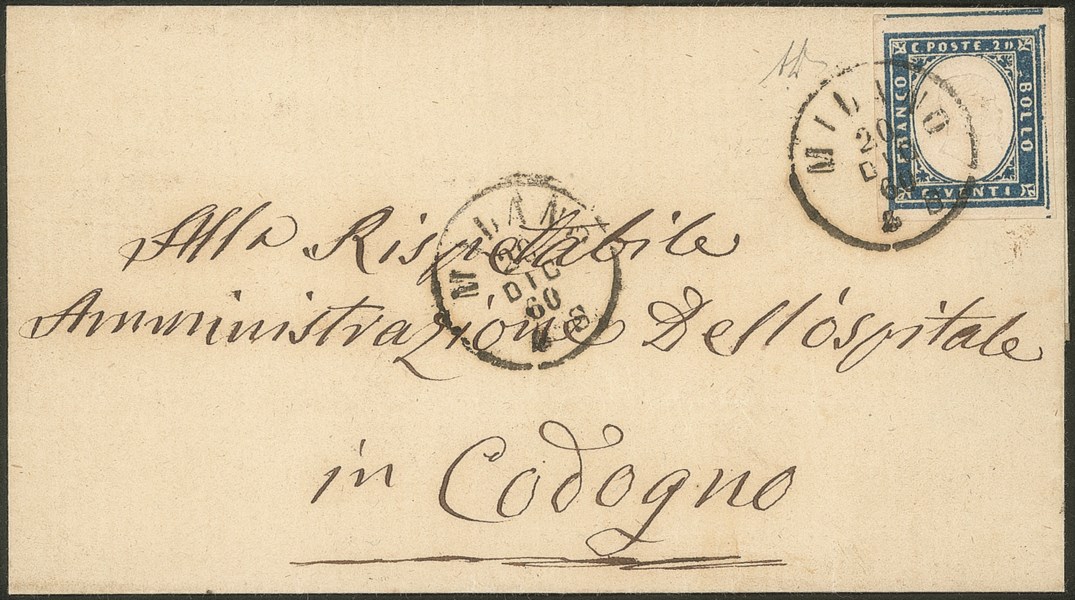 C. POSTE. 20
FRANCO
BOLLO
C. VENTI
MILANO
20
DIC
60
Alla Rispettabile
MILANO
20
DIC
60
Amministrazione Dell'ospitale
in Codogno